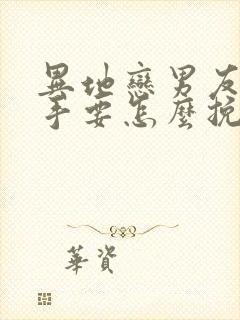 異地戀男友
手要怎麼挽
華資